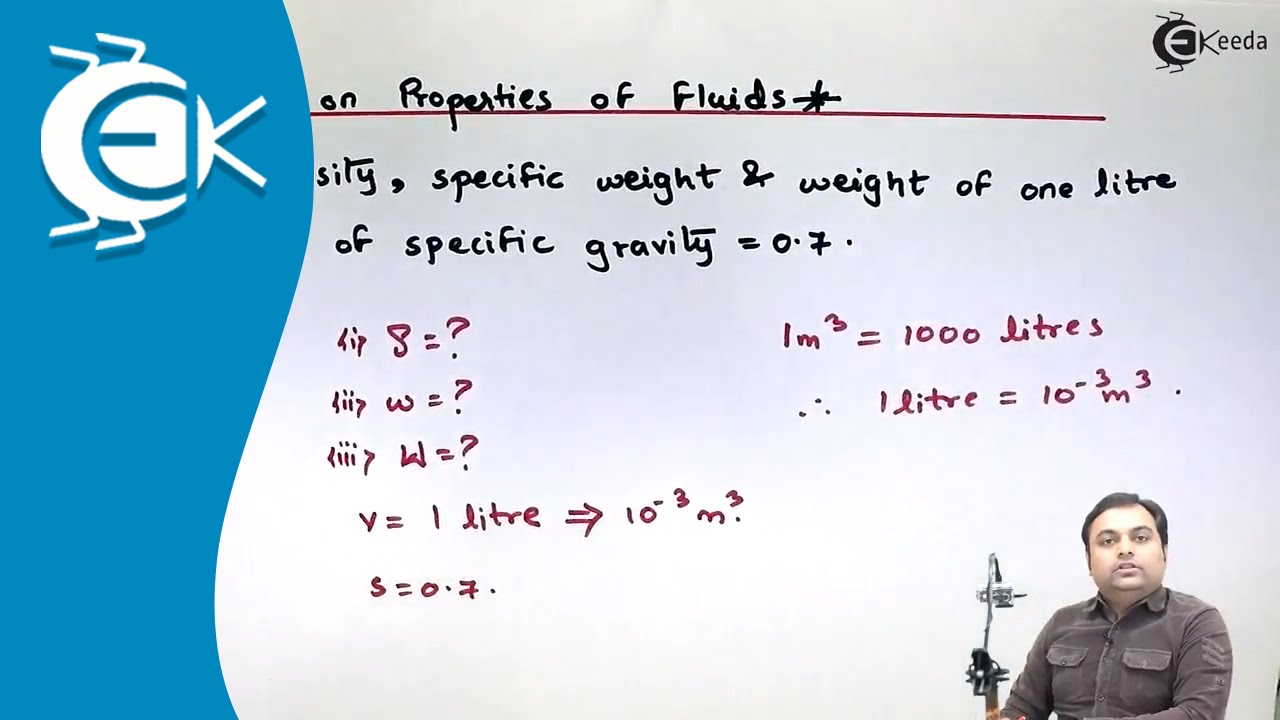 EK
Keeda
on Properties of Fluids*
sity, specific weight & weight of one litre
of specific gravity = 0.7.
(i) ρ = ?
(ii) w = ?
(iii) W = ?
v = 1 litre ⇒ 10⁻³ m³.
s = 0.7.
1m³ = 1000 litres
∴ 1 litre = 10⁻³ m³.